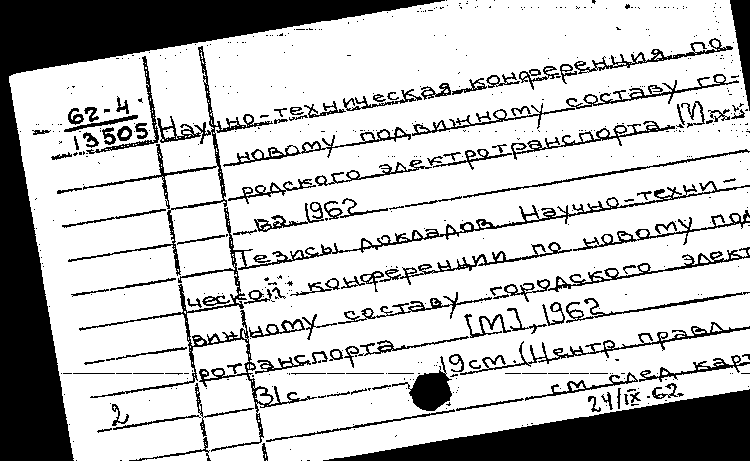 62-4
13505
Научно-техническая конференция по
новому подвижному составу го-
родского электротранспорта. Моск-
ва. 1962
Тезисы докладов Научно-техни-
ческой конференции по новому под
вижному составу городского элект
ротранспорта. [М], 1962
31с. 19см. (Центр. правл.
см. след. карт
2
24/IX.62